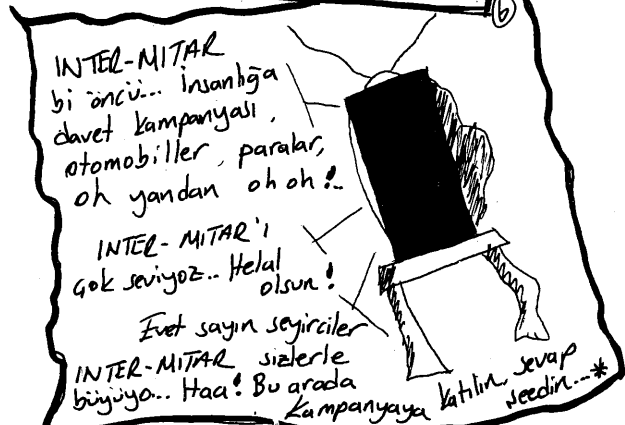 6
INTER-MITAR
bi öncü... İnsanlığa
davet kampanyası,
otomobiller, paralar,
oh yandan oh oh!..
INTER-MITAR'I
çok seviyoz.. Helal
olsun!
Evet sayın seyirciler
INTER-MITAR sizlerle
büyüyo... Haa! Bu arada
kampanyaya katılın, sevap
...*